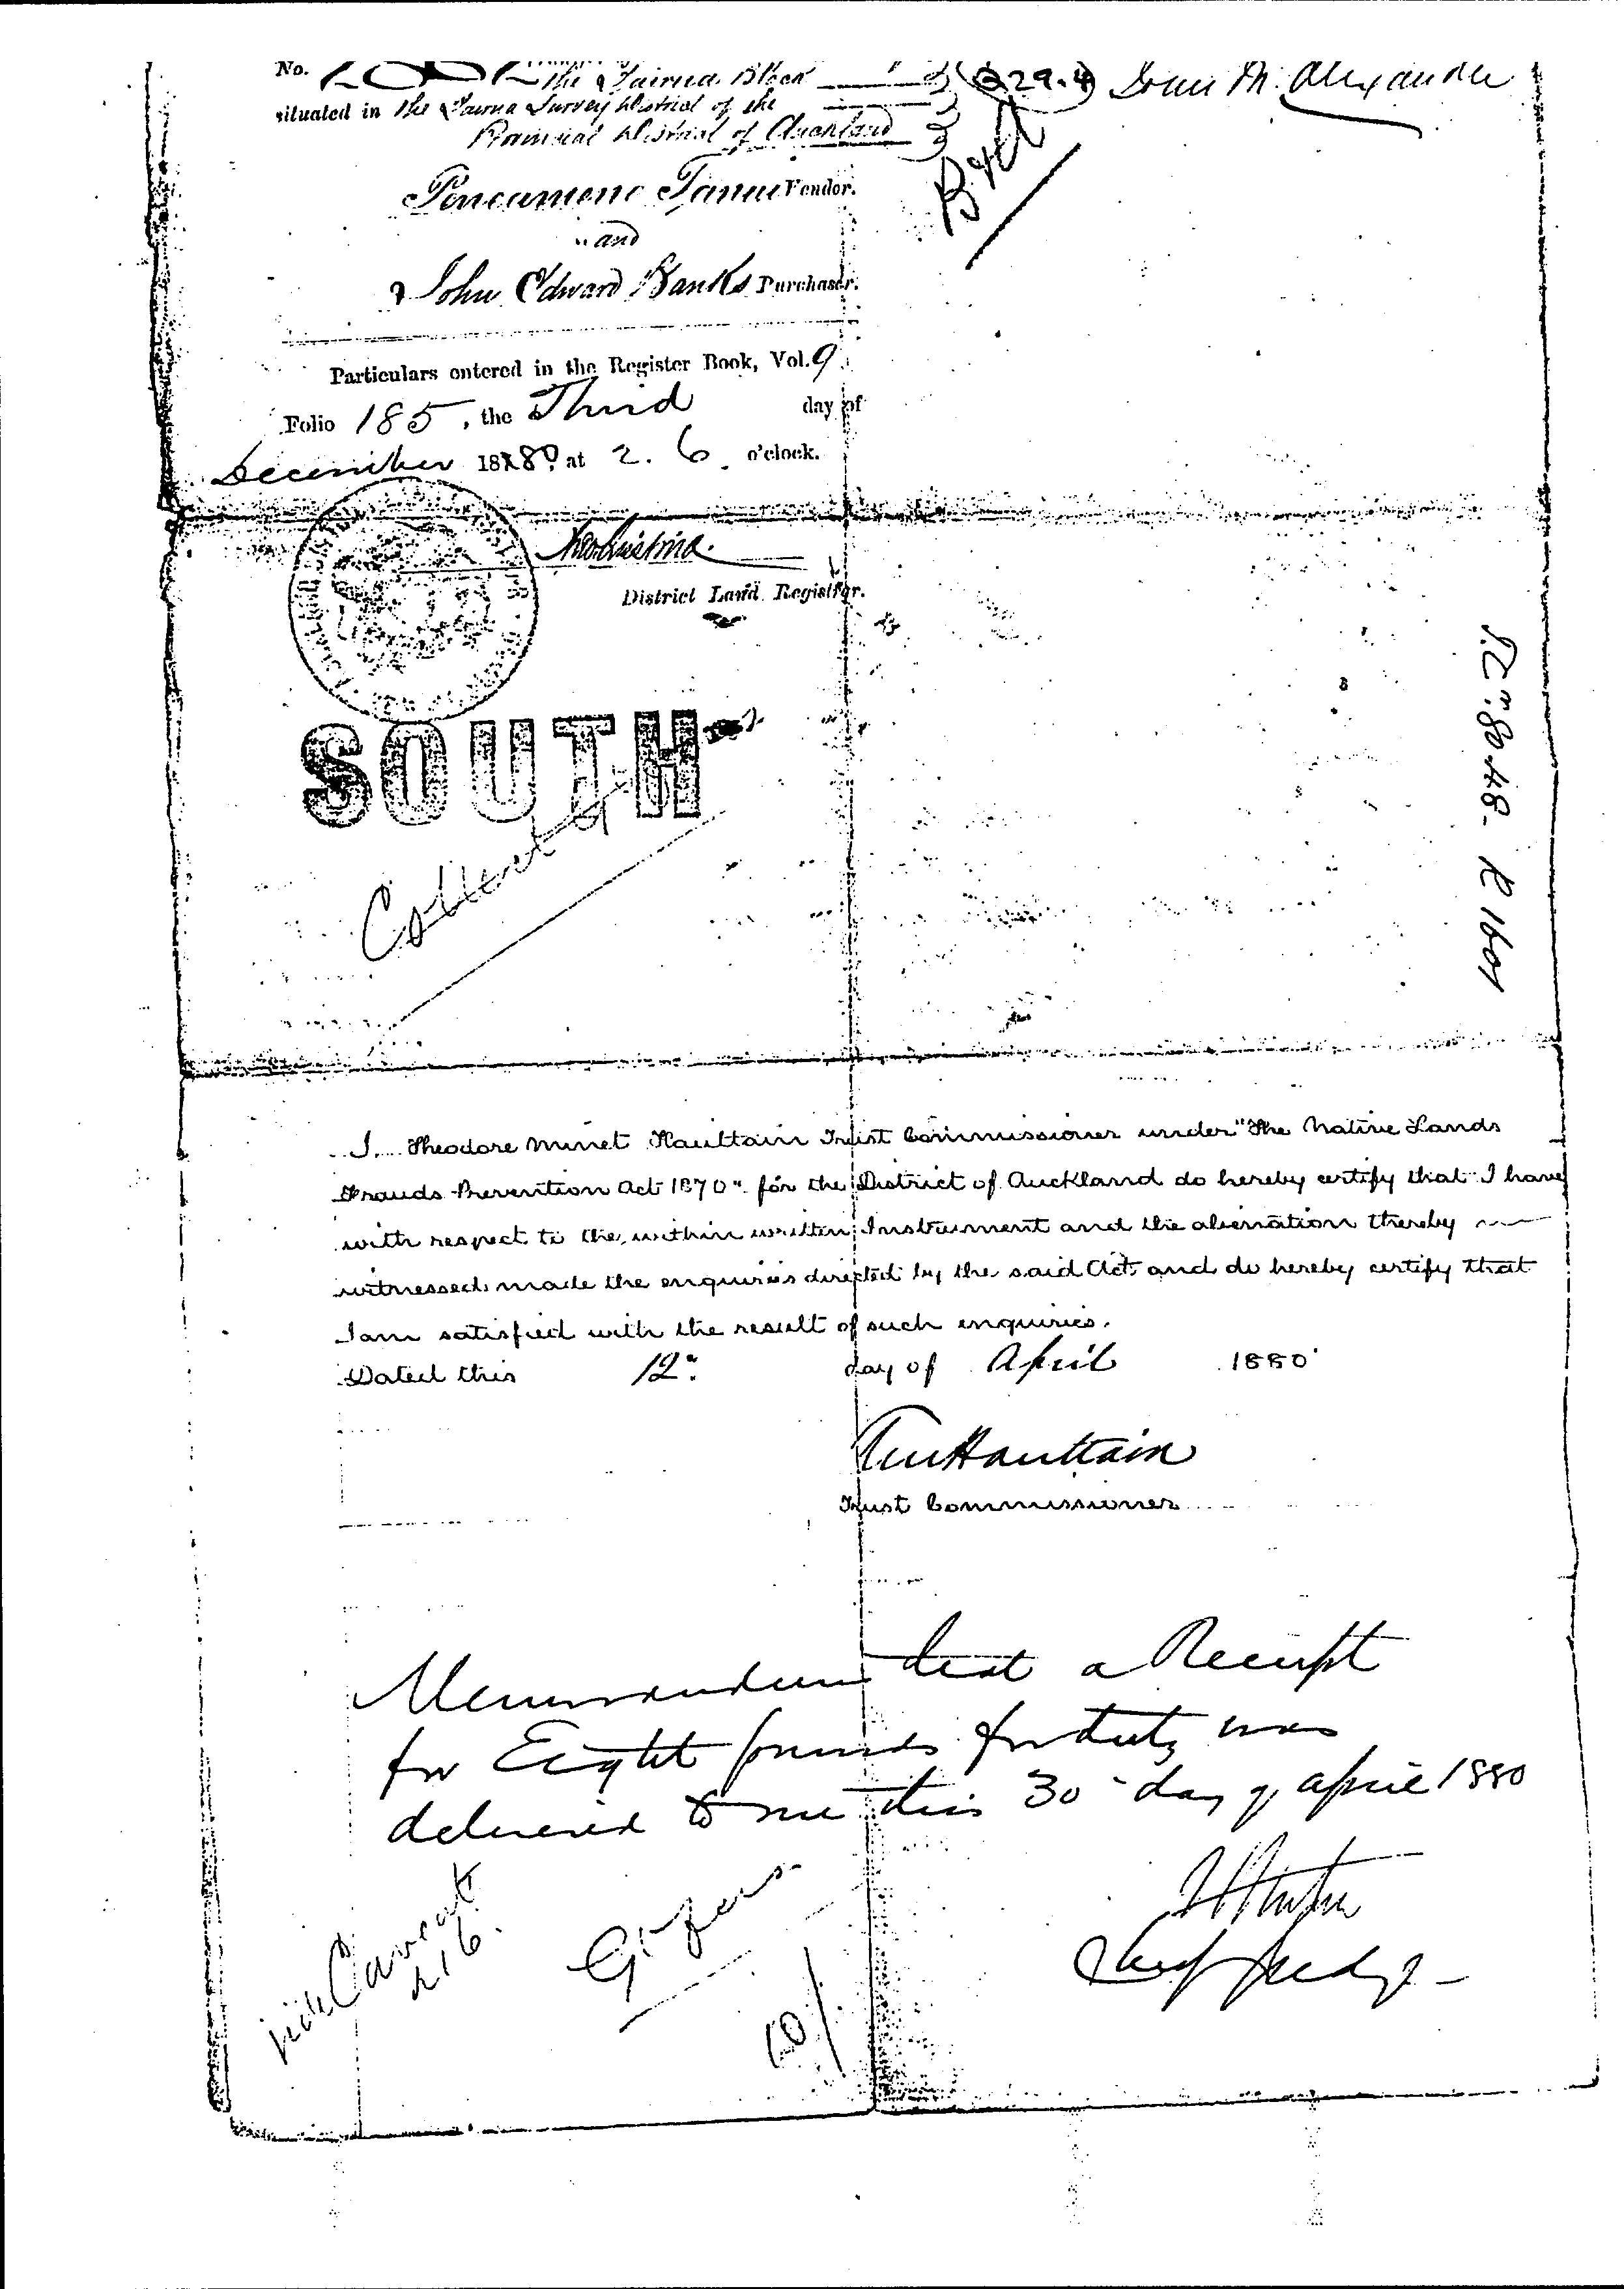 No. the Tairua Block
situated in the Tairua Survey District of the
Provincial District of Auckland
Tanui Vendor.
and
John Edward Banks Purchaser.
Particulars entered in the Register Book, Vol. 9
Folio 185, the Third day of
December 1880 at 2. 6 o'clock.
District Land Registrar.
SOUTH
I Theodore Minet Haultain Trust Commissioner under "The Native Lands
Frauds Prevention Act 1870" for the District of Auckland do hereby certify that I have
with respect to the within written Instrument and the alienation thereby
witnessed made the enquiries directed by the said Act and do hereby certify that
I am satisfied with the result of such enquiries.
Dated this 12" day of April 1880
TM Haultain
Trust Commissioner
Memorandum that a Receipt
for Eight pounds for duty was
delivered to me this 30 day of April 1880
Chief Judge
vide Caveat
216.
10/